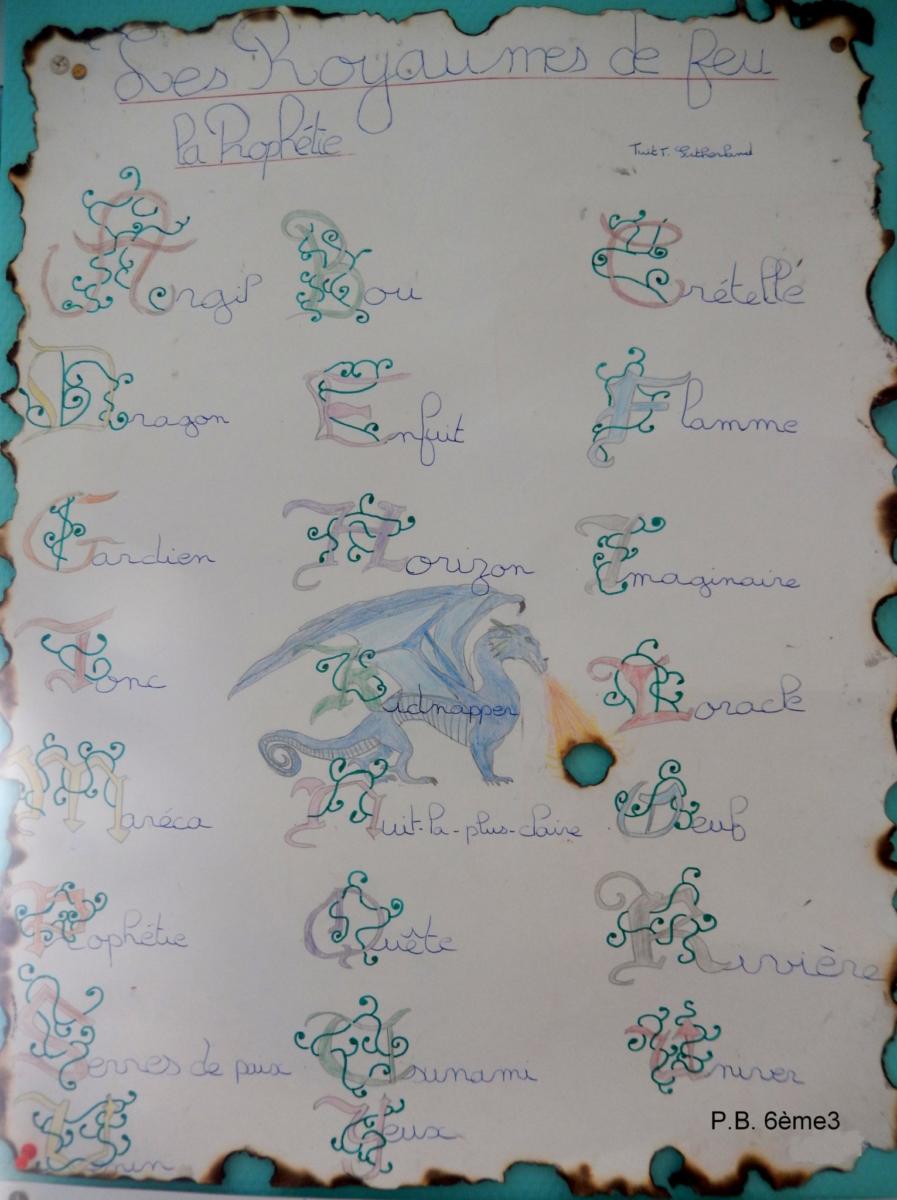 Les Royaumes de feu
la Prophétie
Tuit T. Sutherland
Argil Bou Crételle
Dragon Enfuit Flamme
Gardien Horizon Imaginaire
Jonc Kidnapper Lorack
Maréca Nuit-la-plus-claire Oeuf
Prophétie Quête Rivière
Serres de paix Tsunami Univer
Venin Yeux
P.B. 6ème3